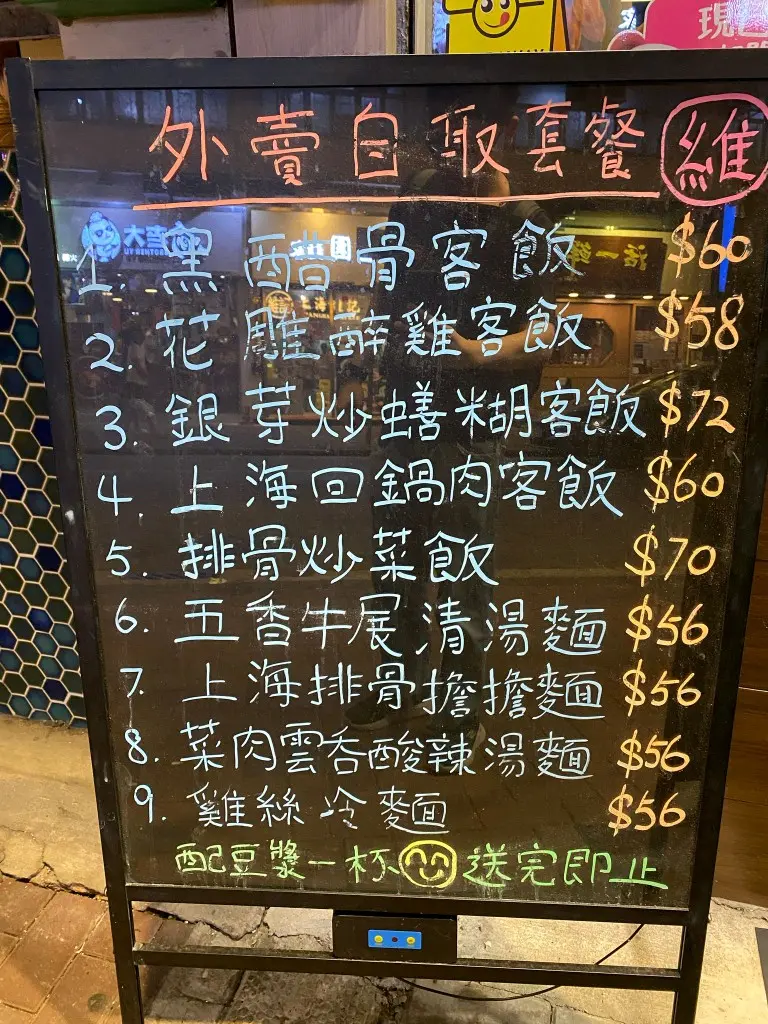 現
外賣自取套餐 維
1. 黑醋骨客飯 $60
2. 花雕醉雞客飯 $58
3. 銀芽炒蟮糊客飯 $72
4. 上海回鍋肉客飯 $60
5. 排骨炒菜飯 $70
6. 五香牛展清湯麵 $56
7. 上海排骨擔擔麵 $56
8. 菜肉雲吞酸辣湯麵 $56
9. 雞絲冷麵 $56
配豆漿一杯 送完即止